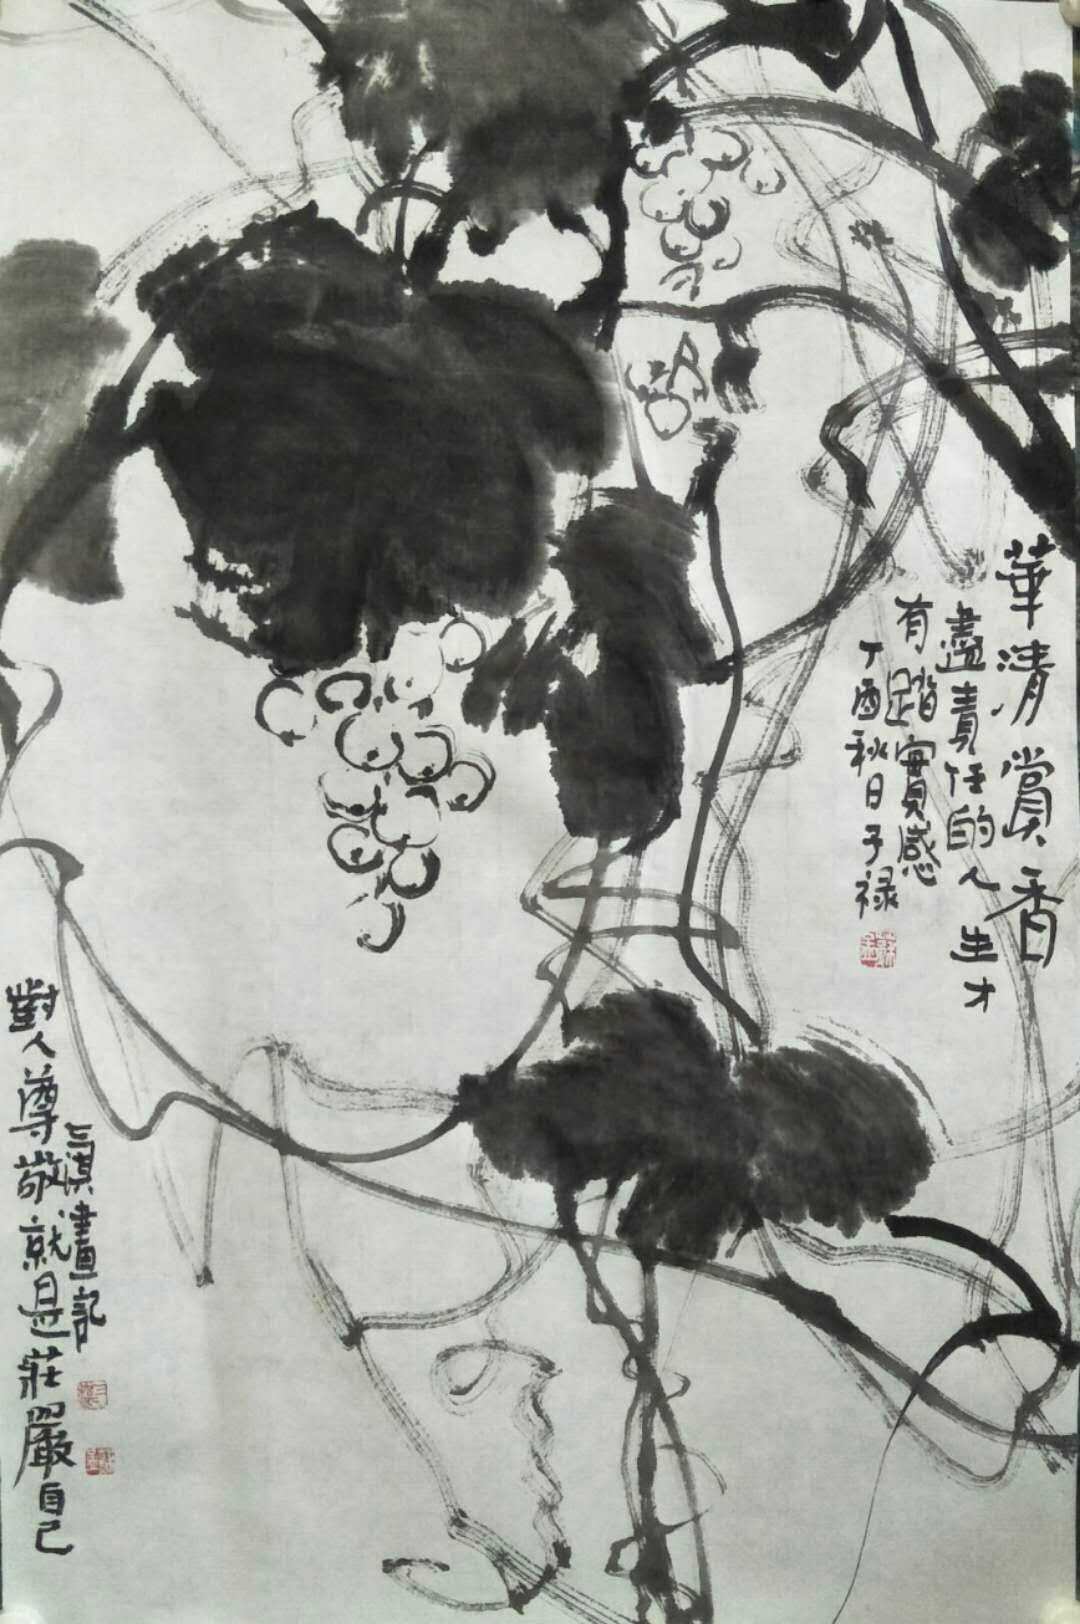 華清賞香
盡責任的人生才
有踏實感
丁酉秋日子禄
對人尊敬就是莊嚴自己
三漠畫記